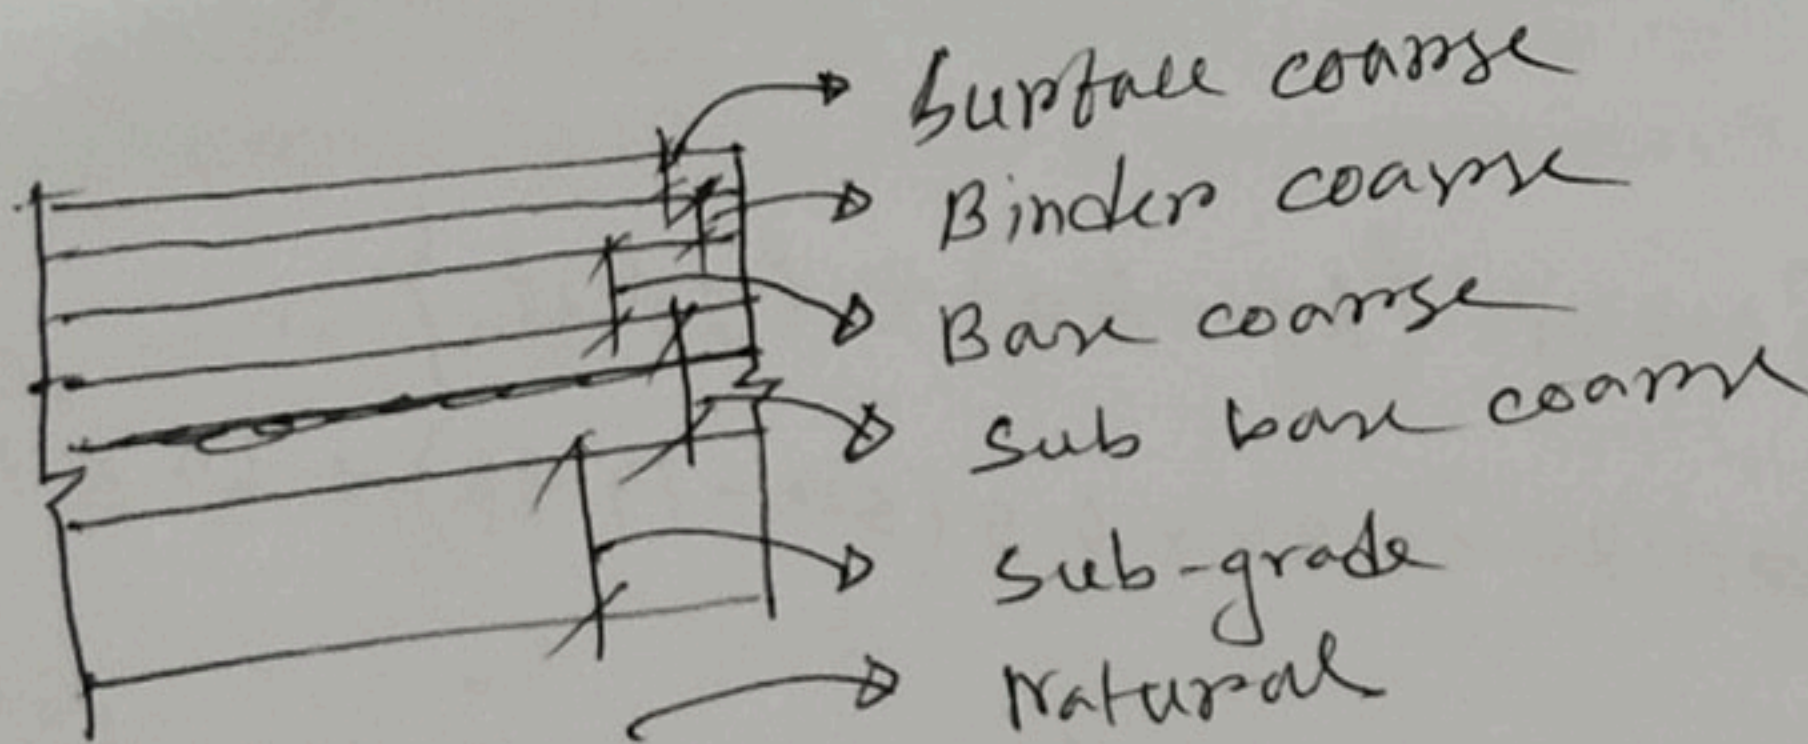 Surface coarse
Binder coarse
Base coarse
Sub base coarse
Sub-grade
Natural